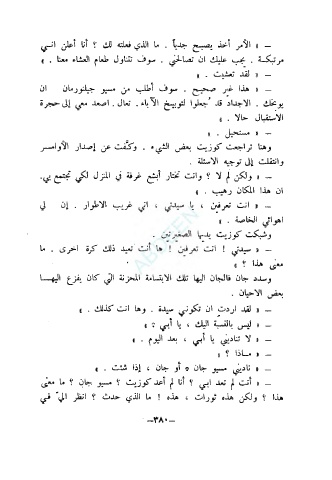 ــ « الأمر أخذ يصبح جدياً . ما الذي فعلته لك ؟ أنا أعلن انني
مرتبكة . يجب عليك ان تصالحني . سوف تتناول طعام العشاء معنا . »
ــ « لقد تعشيت . »
ــ « هذا غير صحيح . سوف أطلب من مسيو جيلنورمان ان
يوبخك . الاجداد قد جُعلوا لتوبيخ الآباء . تعال . اصعد معي إلى حجرة
الاستقبال حالا . »
ــ « مستحيل . »
وهنا تراجعت كوزيت بعض الشيء . وكفّت عن إصدار الأوامـر
وانتقلت إلى توجيه الاسئلة .
ــ « ولكن لم لا ؟ وانت تختار أبشع غرفة في المنزل لكي تجتمع بي.
ان هذا المكان رهيب . »
ــ « انت تعرفين ، يا سيدتي ، اني غريب الاطوار . إن لي
اهوائي الخاصة . »
وشبكت كوزيت يديها الصغيرتين .
ــ « سيدتي ! انت تعرفين ! ها أنت تعيد ذلك كرة اخرى . ما
معنى هذا ؟ »
وسدد جان فالجان اليها تلك الابتسامة المحزنة التي كان يفزع اليهـا
بعض الاحيان .
ــ « لقد اردت ان تكوني سيدة . وها انت كذلك . »
ــ « ليس بالنسبة اليك ، يا أبي ؟ »
ــ « لا تناديني يا أبي ، بعد اليوم . »
ــ « مـاذا ؟ »
ــ « ناديني مسيو جان « أو جان ، إذا شئت . »
ــ « أنت لم تعد ابي ؟ أنا لم أعد كوزيت ؟ مسيو جان ؟ ما معنى
هذا ؟ ولكن هذه ثورات ، هذه ! ما الذي حدث ؟ انظر اليّ في
ــ٣٨٠ــ